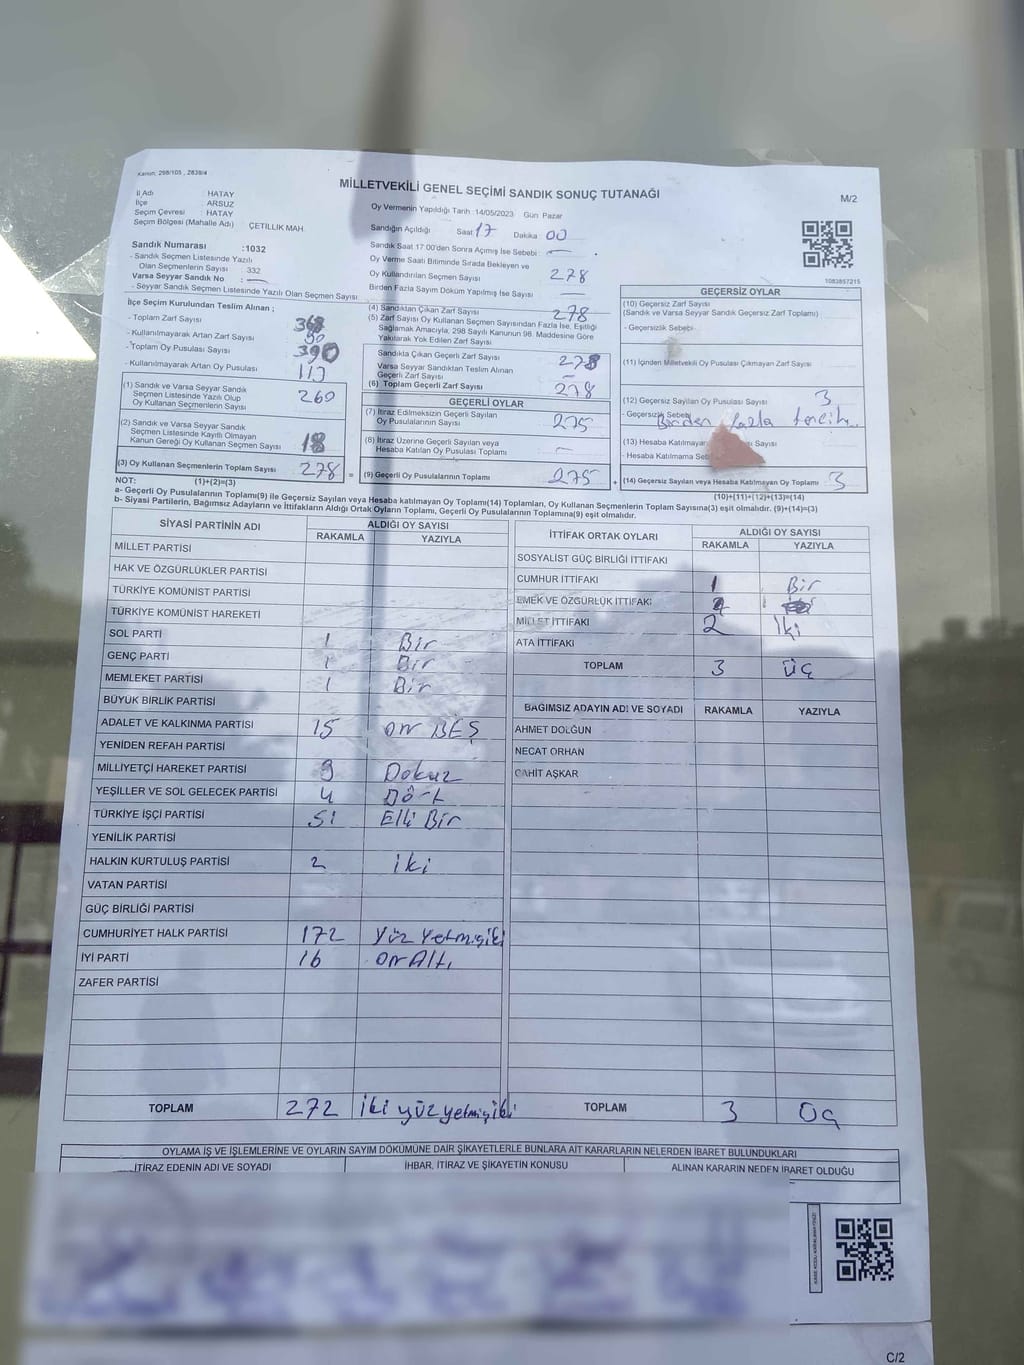 Kanun, 298/105 , 2839/4
MİLLETVEKİLİ GENEL SEÇİMİ SANDIK SONUÇ TUTANAĞI
M/2
İl Adı : HATAY
İlçe : ARSUZ
Seçim Çevresi : HATAY
Seçim Bölgesi (Mahalle Adı) ÇETİLLİK MAH.
Sandık Numarası :1032
- Sandık Seçmen Listesinde Yazılı
Olan Seçmenlerin Sayısı : 332
Varsa Seyyar Sandık No : —
- Seyyar Sandık Seçmen Listesinde Yazılı Olan Seçmen Sayısı:
Oy Vermenin Yapıldığı Tarih :14/05/2023 Gün Pazar
Sandığın Açıldığı Saat 17 Dakika 00
Sandık Saat 17:00'den Sonra Açılmış İse Sebebi : —
Oy Verme Saati Bitiminde Sırada Bekleyen ve
Oy Kullandırılan Seçmen Sayısı 278
Birden Fazla Sayım Döküm Yapılmış İse Sayısı —
1083857215
İlçe Seçim Kurulundan Teslim Alınan ;
- Toplam Zarf Sayısı
- Kullanılmayarak Artan Zarf Sayısı 90
- Toplam Oy Pusulası Sayısı 390
- Kullanılmayarak Artan Oy Pusulası
(1) Sandık ve Varsa Seyyar Sandık
Seçmen Listesinde Yazılı Olup
Oy Kullanan Seçmenlerin Sayısı 260
(2) Sandık ve Varsa Seyyar Sandık
Seçmen Listesinde Kayıtlı Olmayan
Kanun Gereği Oy Kullanan Seçmen Sayısı 18
(3) Oy Kullanan Seçmenlerin Toplam Sayısı 278 =
(4) Sandıktan Çıkan Zarf Sayısı 278
(5) Zarf Sayısı Oy Kullanan Seçmen Sayısından Fazla İse, Eşitliği
Sağlamak Amacıyla, 298 Sayılı Kanunun 98. Maddesine Göre
Yakılarak Yok Edilen Zarf Sayısı
Sandıkta Çıkan Geçerli Zarf Sayısı 278
Varsa Seyyar Sandıktan Teslim Alınan
Geçerli Zarf Sayısı —
(6) Toplam Geçerli Zarf Sayısı 278
GEÇERLİ OYLAR
(7) İtiraz Edilmeksizin Geçerli Sayılan
Oy Pusulalarının Sayısı 275
(8) İtiraz Üzerine Geçerli Sayılan veya
Hesaba Katılan Oy Pusulası Toplamı —
(9) Geçerli Oy Pusulalarının Toplamı 275 +
GEÇERSİZ OYLAR
(10) Geçersiz Zarf Sayısı
(Sandık ve Varsa Seyyar Sandık Geçersiz Zarf Toplamı)
- Geçersizlik Sebebi
(11) İçinden Milletvekili Oy Pusulası Çıkmayan Zarf Sayısı
(12) Geçersiz Sayılan Oy Pusulası Sayısı 3
- Geçersizlik Sebebi Birden fazla tercih
(13) Hesaba Katılmayan Sayısı
- Hesaba Katılmama
(14) Geçersiz Sayılan veya Hesaba Katılmayan Oy Toplamı 3
NOT: (1)+(2)=(3)
(10)+(11)+(12)+(13)=(14)
a- Geçerli Oy Pusulalarının Toplamı(9) ile Geçersiz Sayılan veya Hesaba katılmayan Oy Toplamı(14) Toplamları, Oy Kullanan Seçmenlerin Toplam Sayısına(3) eşit olmalıdır. (9)+(14)=(3)
b- Siyasi Partilerin, Bağımsız Adayların ve İttifakların Aldığı Ortak Oyların Toplamı, Geçerli Oy Pusulalarının Toplamına(9) eşit olmalıdır.
SİYASİ PARTİNİN ADI ALDIĞI OY SAYISI
RAKAMLA YAZIYLA
MİLLET PARTİSİ
HAK VE ÖZGÜRLÜKLER PARTİSİ
TÜRKİYE KOMÜNİST PARTİSİ
TÜRKİYE KOMÜNİST HAREKETİ
SOL PARTİ 1 Bir
GENÇ PARTİ 1 Bir
MEMLEKET PARTİSİ 1 Bir
BÜYÜK BİRLİK PARTİSİ
ADALET VE KALKINMA PARTİSİ 15 on BEŞ
YENİDEN REFAH PARTİSİ
MİLLİYETÇİ HAREKET PARTİSİ 9 Dokuz
YEŞİLLER VE SOL GELECEK PARTİSİ 4 Dört
TÜRKİYE İŞÇİ PARTİSİ 51 Elli Bir
YENİLİK PARTİSİ
HALKIN KURTULUŞ PARTİSİ 2 iki
VATAN PARTİSİ
GÜÇ BİRLİĞİ PARTİSİ
CUMHURİYET HALK PARTİSİ 172 Yüz Yetmişiki
İYİ PARTİ 16 on Altı
ZAFER PARTİSİ
TOPLAM 272 iki yüz yetmişiki
İTTİFAK ORTAK OYLARI ALDIĞI OY SAYISI
RAKAMLA YAZIYLA
SOSYALİST GÜÇ BİRLİĞİ İTTİFAKI
CUMHUR İTTİFAKI 1 Bir
EMEK VE ÖZGÜRLÜK İTTİFAKI
MİLLET İTTİFAKI 2 iki
ATA İTTİFAKI
TOPLAM 3 üç
BAĞIMSIZ ADAYIN ADI VE SOYADI RAKAMLA YAZIYLA
AHMET DOLĞUN
NECAT ORHAN
CAHİT AŞKAR
TOPLAM 3 Üç
OYLAMA İŞ VE İŞLEMLERİNE VE OYLARIN SAYIM DÖKÜMÜNE DAİR ŞİKAYETLERLE BUNLARA AİT KARARLARIN NELERDEN İBARET BULUNDUKLARI
İTİRAZ EDENİN ADI VE SOYADI İHBAR, İTİRAZ VE ŞİKAYETİN KONUSU ALINAN KARARIN NEDEN İBARET OLDUĞU
C/2